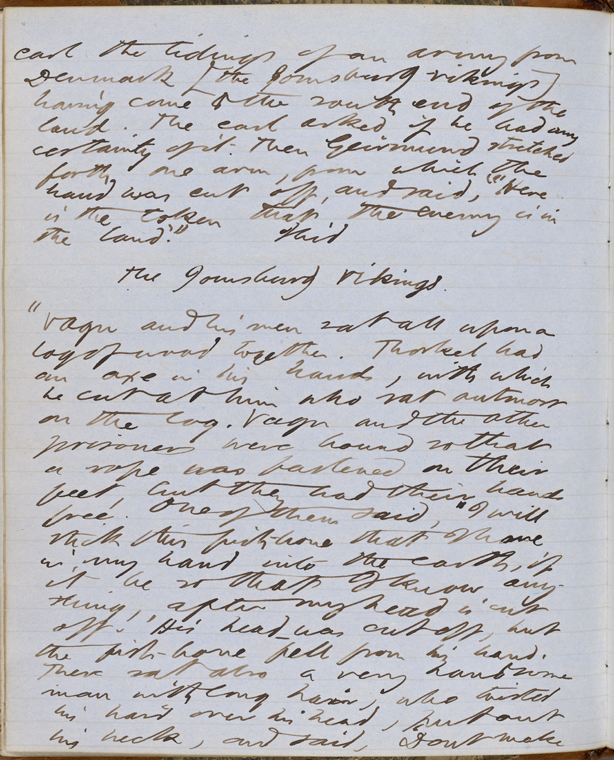 earl the tidings of an army from
Denmark [the Jomsburg vikings]
having come to the south end of the
land. The earl asked if he had any
certainty of it. Then Geirmund stretched
forth one arm, from which the
hand was cut off, and said, "Here
is the token that the enemy is in
the land." Ibid
The Jomsburg Vikings.
"Vagn and his men sat all upon a
log of wood together. Thorkel had
an axe in his hands, with which
he cut at him who sat outmost
on the log. Vagn and the other
prisoners were bound so that
a rope was fastened on their
feet, but they had their hands
free. One of them said, "I will
stick this fish-bone that I have
in my hand into the earth, if
it be so that I know any-
thing, after my head is cut
off." His head was cut off, but
the fish-bone fell from his hand.
There sat also a very handsome
man with long hair, who twisted
his hair over his head, put out
his neck, and said, Don't make